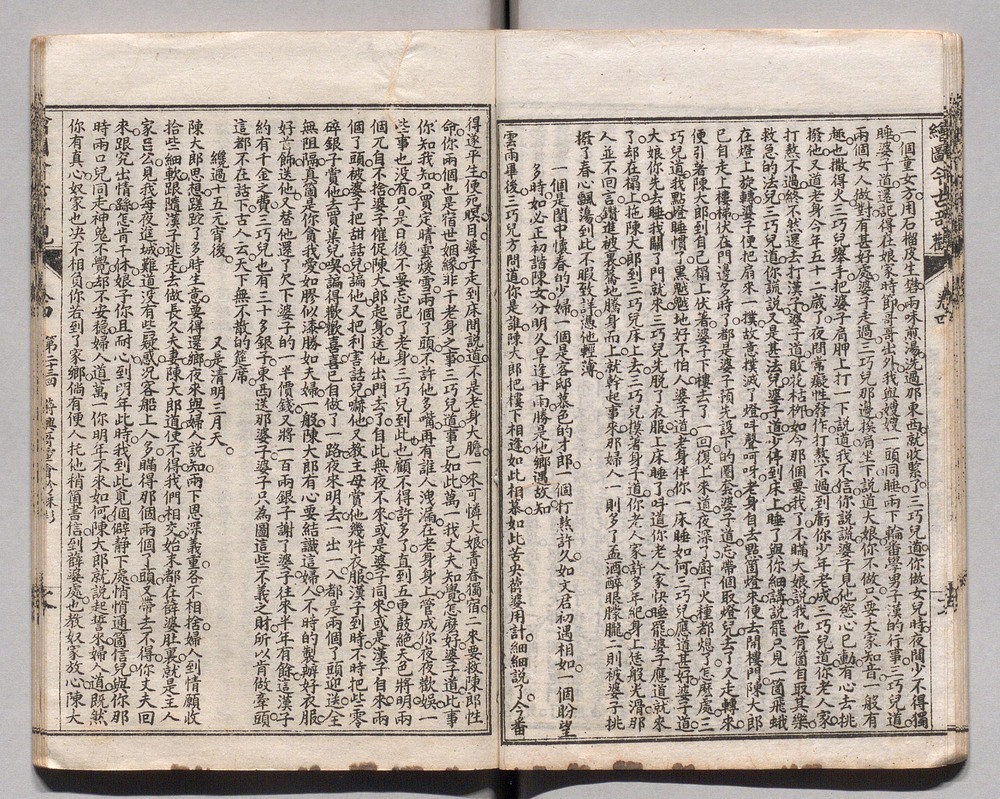 一個童女方用石榴皮生礬兩味煎湯洗過那東西就收緊了三巧兒道你做女兒時夜間少不得獨
睡婆子道還記得在娘家時節哥哥出外我與嫂嫂一頭同睡兩下輪番學男子漢的行事三巧兒道
兩個女人做對有甚好處婆子走過三巧兒那邊挨肩坐下說道大娘你不做只要大家知音一般有
趣也撒得火三巧兒舉手把婆子肩胛上打一下說道我不信你說謊婆子見他慾心已動有心去挑
撥他又道老身今年五十二歲了夜間常癡性發作打熬不過到虧你少年老成三巧兒道你老人家
打熬不過終不然還去打漢子婆子道敗花枯柳如今那個要我了不瞞大娘說我也有箇自取其樂
救急的法兒三巧兒道你謊說又是甚法兒婆子道少停到床上睡了與你細講說罷只見一箇飛蛾
在燈上旋轉婆子便把扇來一撲故意撲滅了燈呀聲呵呀老身自去點箇燈來便去開樓門陳大郎
已自走上樓梯伏在門邊多時了都是婆子預先設下的圈套婆子道忘帶個取燈兒去了又走轉來
便引著陳大郎到自己榻上伏著婆子下樓去了一回復上來道夜深了廚下火種都熄了怎麼處三
巧兒道我點燈睡慣了黑魆魆地好不怕人婆子道老身伴你一床睡如何三巧兒應道甚好婆子道
大娘你先去睡我關了門就來三巧兒先脫了衣服上床睡了呼道你老人家快睡罷婆子應道就來
了却在榻上拖陳大郎到三巧兒床上去三巧兒摸著身子道你老人家許多年紀身上恁般光滑那
人並不回言鑽進被裏驀地騰身而上就幹起事來那婦人一則多了盃酒醉眼朦朧二則被婆子挑
撥了春心飄蕩到此不暇致詳憑他輕薄
一個是閨中懷春的少婦一個是客邸慕色的才郎一個打熬許久如文君初遇相如一個盼望
多時如必正初諧陳女分明久旱逢甘雨勝是他鄉遇故知
雲雨畢後三巧兒方問道你是誰陳大郎把樓下相逢如此相慕如此苦央薛婆用計細細說了今番
得遂平生便死瞑目婆子走到床間說道不是老身大膽一來可憐大娘青春獨宿二來要救陳郎性
命你兩個也是宿世姻緣非干老身之事三巧兒道事已如此萬一我丈夫知覺怎麼好婆子道此事
你知我知只買定晴雲煖雪兩個丫頭不許他多嘴再有誰人洩漏在老身身上管成你夜夜歡娛一
些事也没有只是日後不要忘記了老身三巧兒到此也顧不得許多了直到五更鼓絕天色將明兩
個兀自不捨婆子催促陳大郎起身送他出門去了自此無夜不來或是婆子同來或是漢子自來兩
個丫頭被婆子把甜話兒偎他又把利害話兒嚇他又教主母賞他幾件衣服漢子到時不時把些零
碎銀子賞他去買菓兒喫騙得歡歡喜喜已自做了一路夜來明去一出一入都是兩個丫頭迎送全
無阻隔真箇是你貪我愛如膠似漆勝如夫婦一般陳大郎有心要結識這婦人不時的製辦好衣服
好首飾送他又替他還了欠下婆子的一半價錢又將一百兩銀子謝了婆子往來半年有餘這漢子
約有千金之費三巧兒也有三十多銀子東西送那婆子婆子只為圖這些不義之財所以肯做牽頭
這都不在話下古人云天下無不散的筵席
纔過十五元宵後
又是清明三月天
陳大郎思想蹉跎了多時生意要得還鄉夜來與婦人說知兩下恩深義重各不相捨婦人到情願收
拾些細軟跟隨漢子逃走去做長久夫妻陳大郎道使不得我們相交始末都在薛婆肚裏就是主人
家呂公見我每夜進城難道没有些疑惑况客船上人多瞞得那個兩個丫頭又帶去不得你丈夫回
來跟究出情繇怎肯干休娘子你且耐心到明年此時我到此覓個僻靜下處悄悄通箇信兒與你那
時兩口兒同走神鬼不覺却不安穩婦人道萬一你明年不來如何陳大郎就說起誓來婦人道既然
你有真心奴家也决不相負你若到了家鄉倘有便人托他稍箇書信到薛婆處也教奴家放心陳大